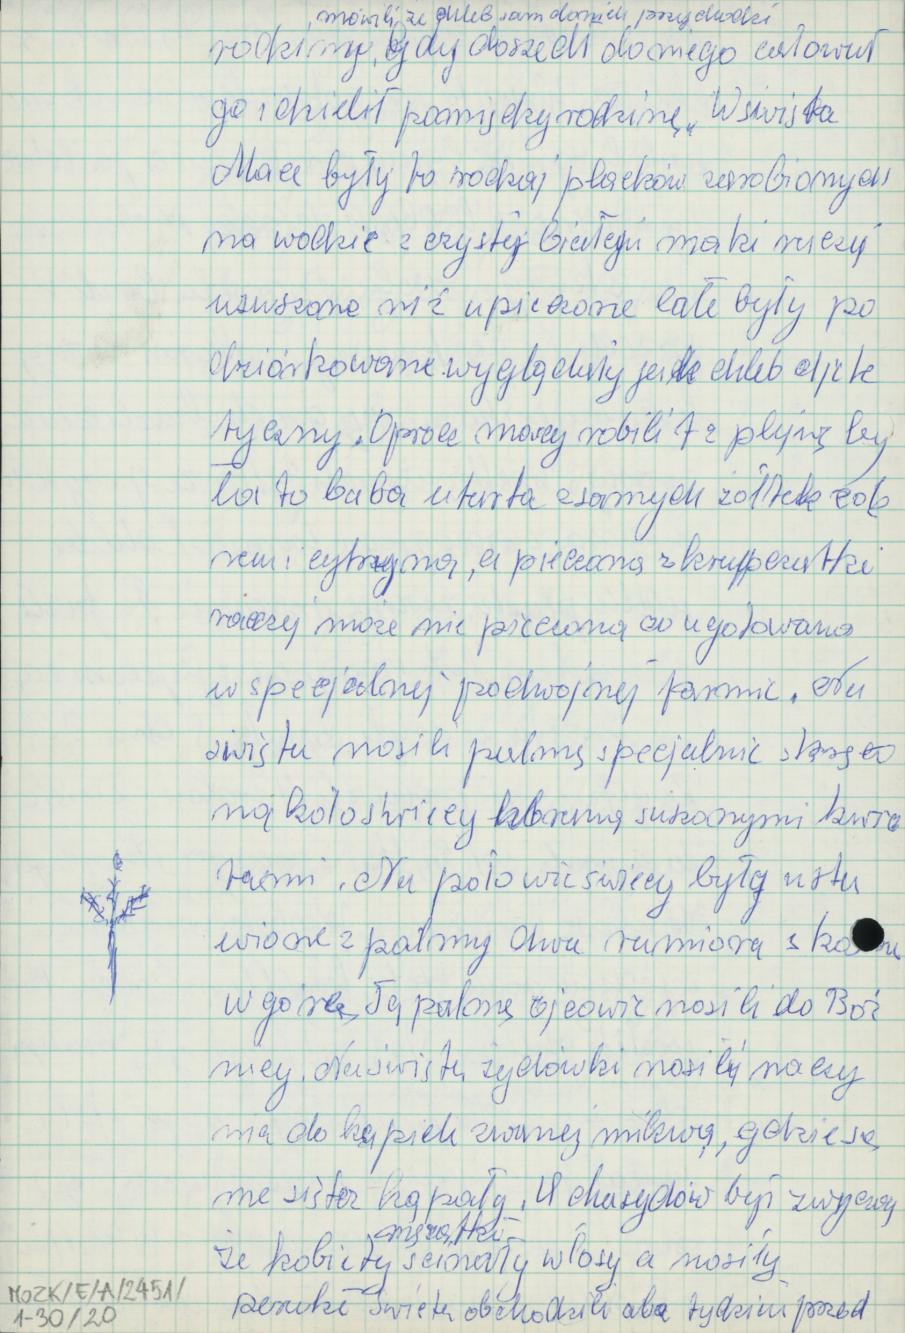 mówili że chleb sam do nich przychodzi
rodziny, gdy doszedł do niego całował
go i dzielił pomiędzy rodzinę. W święta
Mace były to rodzaj placków zarobionych
na wodzie z czystej białej mąki raczej
ususzone niż upieczone całe były po
dziórkowane wyglądały jak chleb djete
tyczny. Oprócz macy robili tz plejzę by
ła to baba utarta z samych żółtek
i cytryną, a pieczona
raczej może nie pieczona co ugotowana
w specjalnej podwójnej formie. Na
święta nosili palmę specjalnie
na koło świecy suszonymi kwia
tami. Na połowie świecy były usta
wione z palmy dwa ramiona
w górę, Tą palmę ojcowie nosili do Boż
nicy. Na święta żydówki nosiły naczy
nia do kąpieli zwanej mikwą, gdzie są
me się też kąpały. U chasydów był zwyczaj
mężatki
że kobiety ścinały włosy a nosiły
peruki święta obchodzili aba tydzień przed
MOZK/E/A/2451/
1-30/20